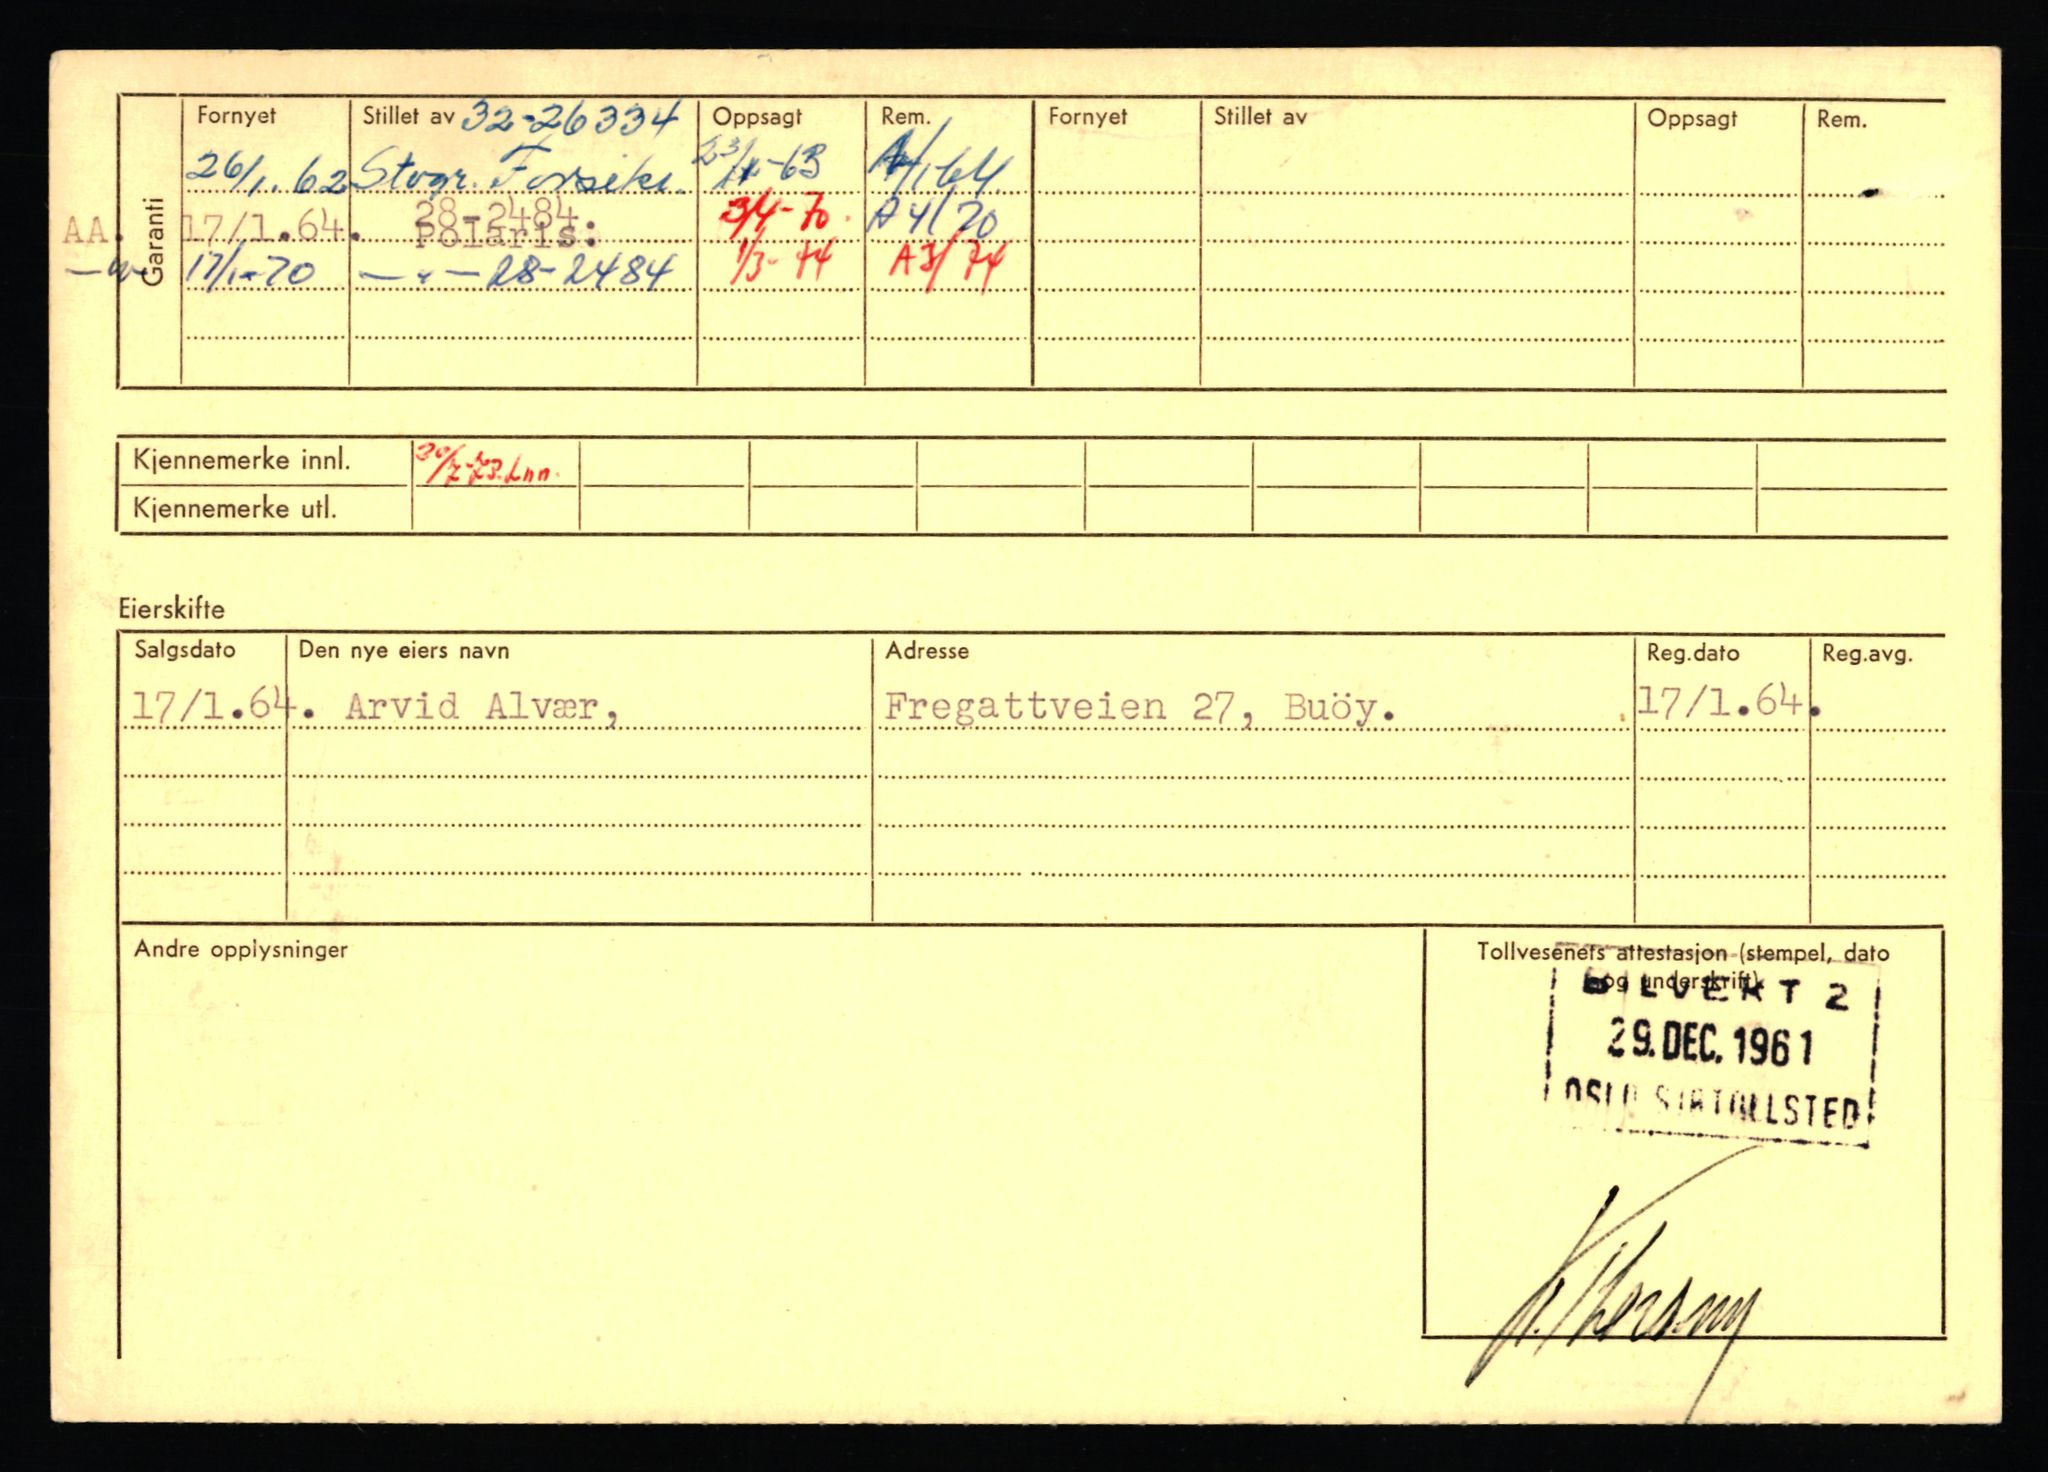 Garanti
Fornyet Stillet av 32-26334 Oppsagt Rem. Fornyet Stillet av Oppsagt Rem.
26/1. 62 Stvgr. Forsikr. 23/ -63 A1/1-64.
28-2484.
AA. 17/1.64. Polaris: 3/4-70. A 4/70
—"— 17/1-70 —"— 28-2484 1/3-74 A3/74
Kjennemerke innl. 30/7-73. Inn.
Kjennemerke utl.
Eierskifte
Salgsdato Den nye eiers navn Adresse Reg.dato Reg.avg.
17/1.64. Arvid Alvær, Fregattveien 27, Buöy. 17/1.64.
Andre opplysninger
Tollvesenets attestasjon (stempel, dato
og underskrift).
BILVEKT 2
29. DEC. 1961
OSLO TOLLSTED